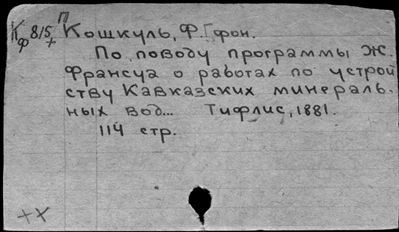 К 815 П Кошкуль, Ф. Г. фон.
ф +
По поводу программы Ж.
Франсуа о работах по устрой
ству Кавказских минераль-
ных вод... Тифлис, 1881.
114 стр.
++